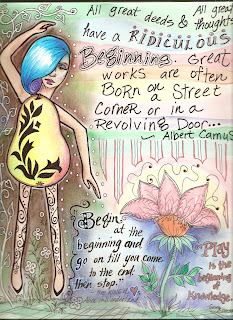 All great deeds & All great thoughts
have a RIDICULOUS
Beginning. Great
works are often
BORN on a Street
Corner or in a
Revolving Door...
Albert Camus
"Begin
at the
beginning and
go on till you come
to the end:
then stop."
Play
is the
beginning
of
Knowledge.